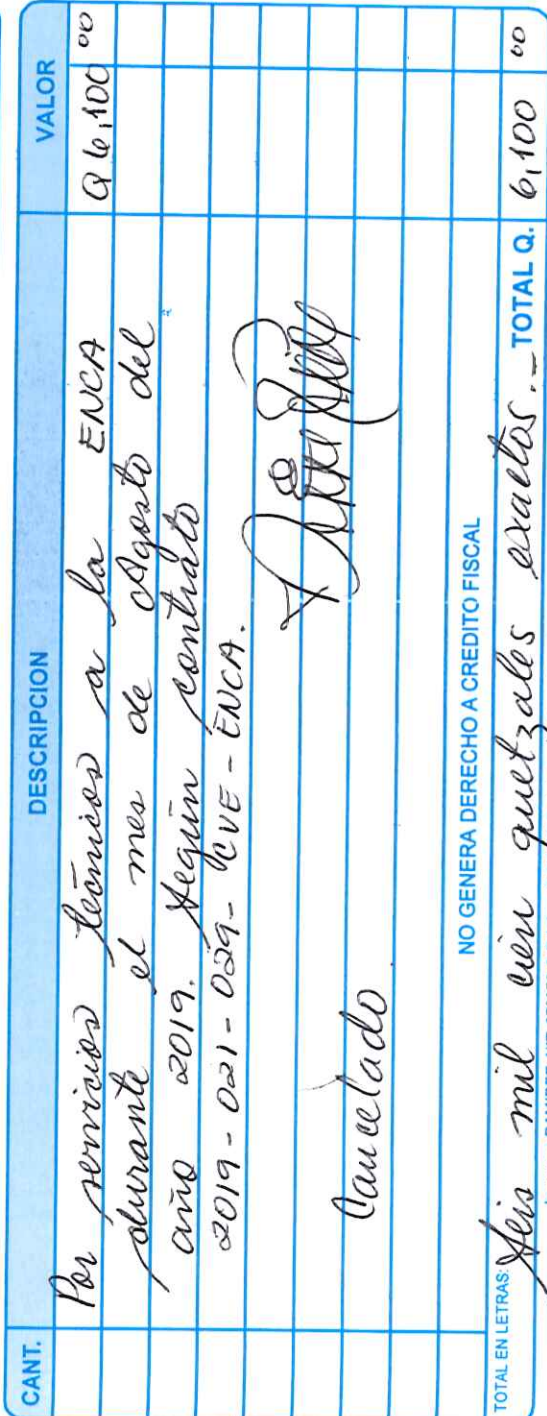 CANT. DESCRIPCION VALOR
Por servicios técnicos a la ENCA Q 6,100 00
durante el mes de Agosto del
año 2019. Según contrato
2019-021-029-CVE-ENCA.
Cancelado
NO GENERA DERECHO A CREDITO FISCAL
TOTAL EN LETRAS: Seis mil cien quetzales exactos.- TOTAL Q. 6,100 00